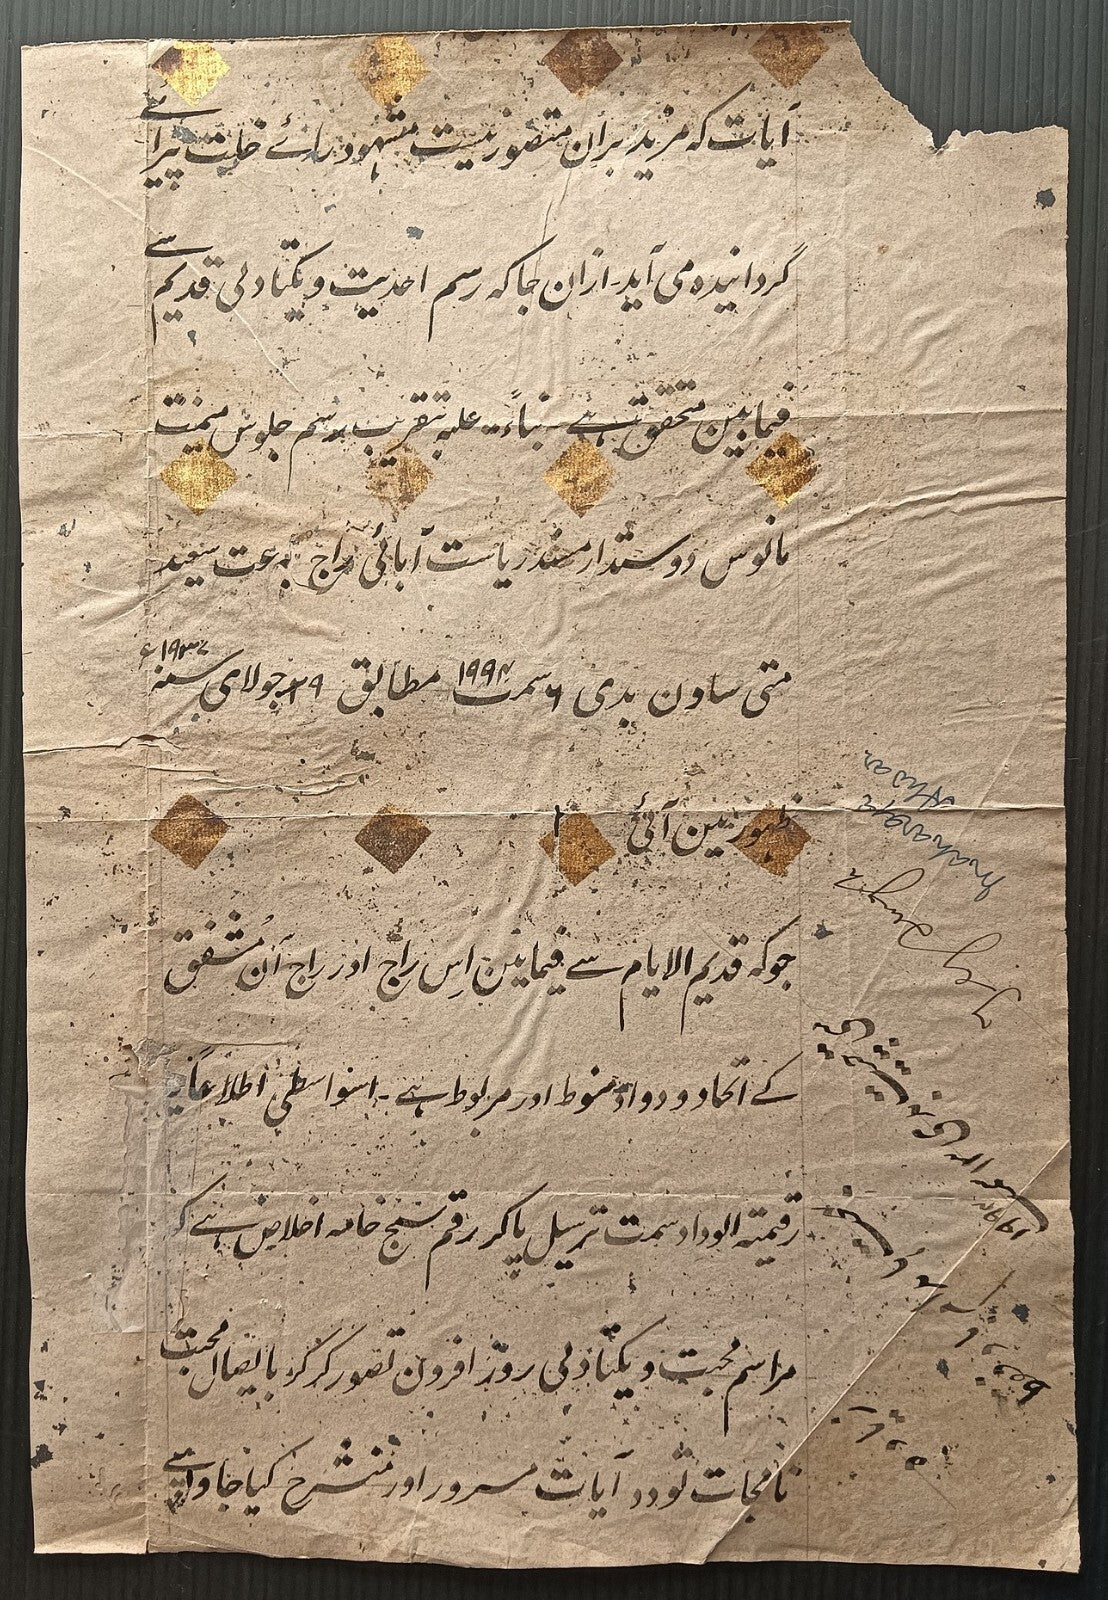 آیات کہ مزید بران متصور نیست مشہود رائے خلت پیرائے
گردانیدہ می آید۔ ازان جا کہ رسم احدیت و یکتادلی قدیم سے
فیمابین متحقق ہے۔ بناءً علیہ بتقریب رسم جلوس میمنت
مانوس دوستدار مسند ریاست آبائی راج بساعت سعید
متی ساون بدی ۶ سمت ۱۹۹۴ مطابق ۲۹ جولای سنہ ۱۹۳۷ء
ظہور مین آئی
جو کہ قدیم الایام سے فیمابین اِس راج اور راج آن مُشفق
کے اتحاد و وداد منوط اور مربوط ہے۔ اسواسطی اطلاعاً یہ
رقیمتہ الوداد سمت ترسیل پا کر رقم سنج خامہ اخلاص ہے کہ
مراسم محبت و یکتادلی روز افزون تصور کر کر بایصال محبت
نامجات تودد آیات مسرور اور منشرح کیا جاوے
Maharaja